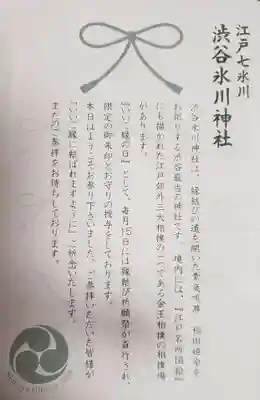 江戸七氷川
渋谷氷川神社
渋谷氷川神社は、縁結びの道を開いた素戔嗚尊・稲田姫命を
お祀りする渋谷最古の神社です。境内には、『江戸名所図絵』
にも描かれた江戸郊外三大相撲の一つである金王相撲の相撲場
があります。
『いいご縁の日』として、毎月15日には縁結び祈願祭が斎行され、
限定の御朱印とお守りの授与をしております。
本日はようこそお参り下さいました。ご参拝いただいた皆様が
『いいご縁に結ばれますように』とご祈念いたします。
またのご参拝をお待ちしております。